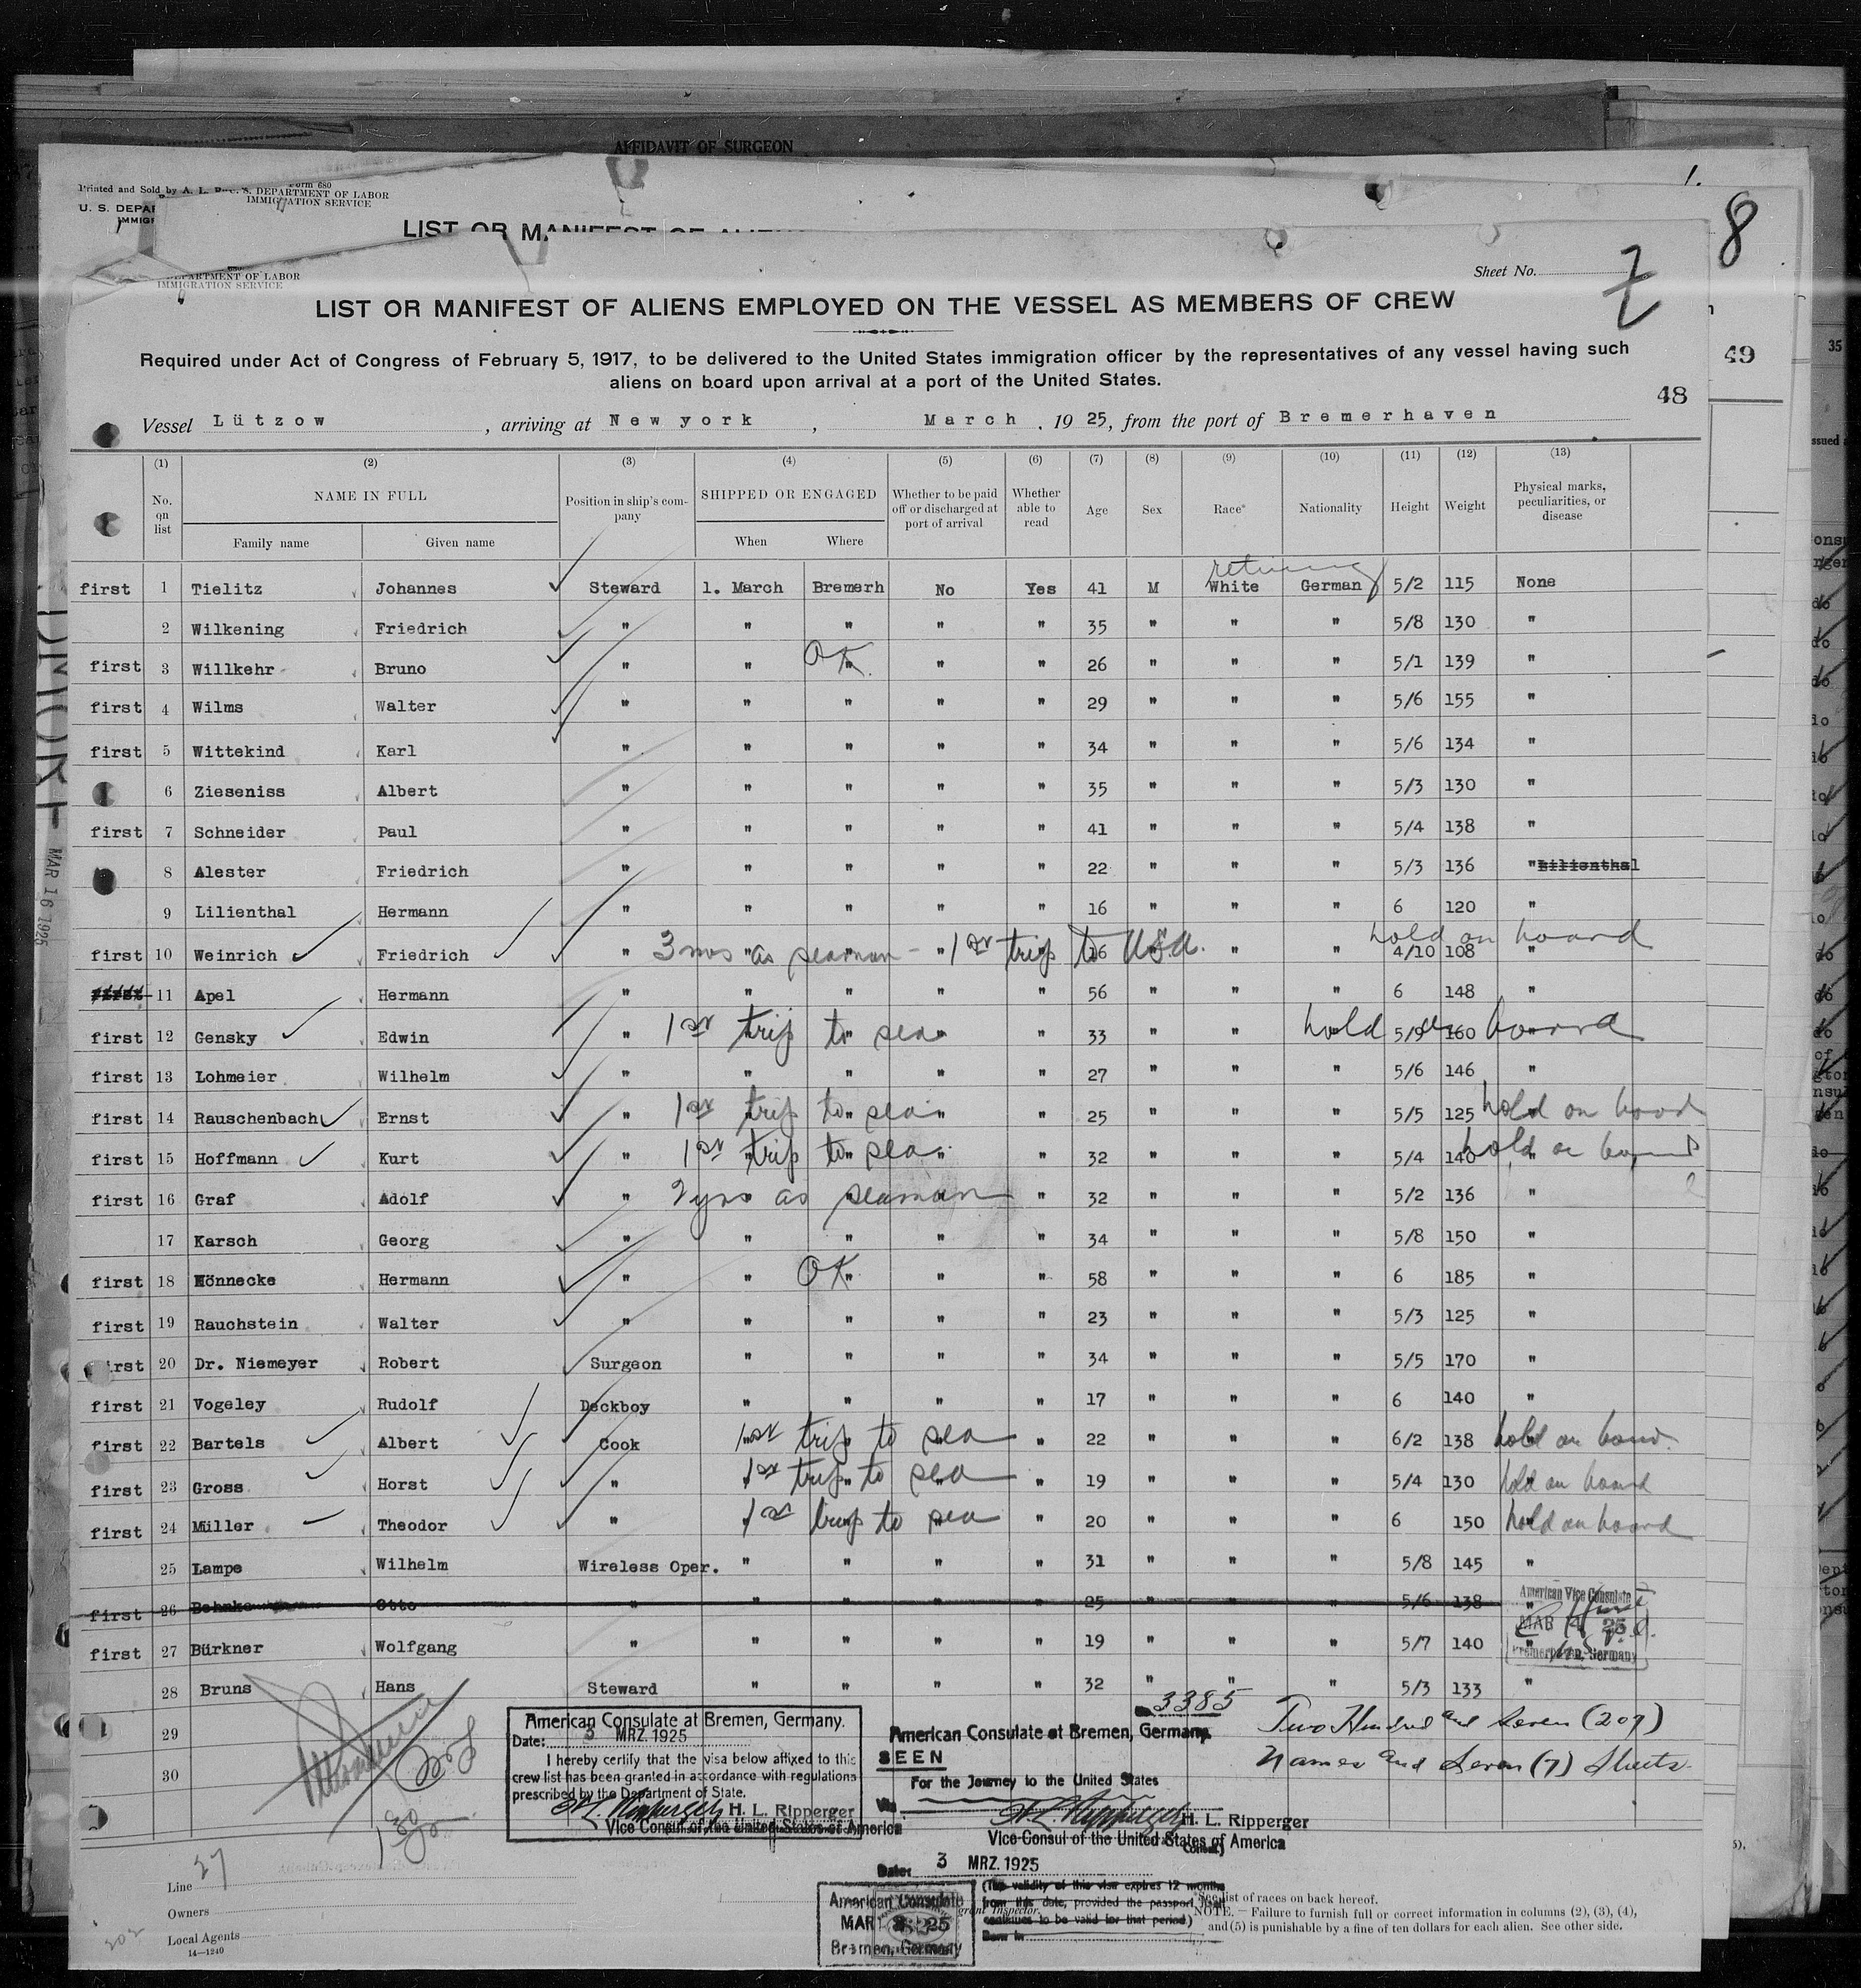 AFFIDAVIT OF SURGEON
1.
Printed and Sold by A. L.
Form 680
S. DEPARTMENT OF LABOR
IMMIGRATION SERVICE
U. S. DEPA
IMMIG
LIST OR MANIFEST OF
8
DEPARTMENT OF LABOR
IMMIGRATION SERVICE
Sheet No. 7
LIST OR MANIFEST OF ALIENS EMPLOYED ON THE VESSEL AS MEMBERS OF CREW
Required under Act of Congress of February 5, 1917, to be delivered to the United States immigration officer by the representatives of any vessel having such
aliens on board upon arrival at a port of the United States.
49
35
48
Vessel Lützow, arriving at New york, March, 1925, from the port of Bremerhaven
(1) (2) (3) (4) (5) (6) (7) (8) (9) (10) (11) (12) (13)
No. on list NAME IN FULL Position in ship's company SHIPPED OR ENGAGED Whether to be paid off or discharged at port of arrival Whether able to read Age Sex Race* Nationality Height Weight Physical marks, peculiarities, or disease
Family name Given name When Where
returning
first 1 Tielitz Johannes Steward 1. March Bremerh No Yes 41 M White German 5/2 115 None
2 Wilkening Friedrich " " " " " 35 " " " 5/8 130 "
first 3 Willkehr Bruno " " OK. " " 26 " " " 5/1 139 "
first 4 Wilms Walter " " " " " 29 " " " 5/6 155 "
first 5 Wittekind Karl " " " " " 34 " " " 5/6 134 "
6 Zieseniss Albert " " " " " 35 " " " 5/3 130 "
first 7 Schneider Paul " " " " " 41 " " " 5/4 138 "
8 Alester Friedrich " " " " " 22 " " " 5/3 136 " Lilienthal
9 Lilienthal Hermann " " " " " 16 " " " 6 120 "
first 10 Weinrich Friedrich " 3 mos as seaman - 1st trip to USA. 16 " " " 4/10 108 " hold on board
first 11 Apel Hermann " " " " " 56 " " " 6 148 "
first 12 Gensky Edwin " 1st trip to sea " 33 " " " 5/9 160 " hold on board
first 13 Lohmeier Wilhelm " " " " " 27 " " " 5/6 146 "
first 14 Rauschenbach Ernst " 1st trip to sea " 25 " " " 5/5 125 hold on board
first 15 Hoffmann Kurt " 1st trip to sea " 32 " " " 5/4 140 hold on board
first 16 Graf Adolf " 2 yrs as seaman " 32 " " " 5/2 136 "
17 Karsch Georg " " " " " 34 " " " 5/8 150 "
first 18 Hermann " " OK " " 58 " " " 6 185 "
first 19 Rauchstein Walter " " " " " 23 " " " 5/3 125 "
first 20 Dr. Niemeyer Robert Surgeon " " " " 34 " " " 5/5 170 "
first 21 Vogeley Rudolf Deckboy " " " " 17 " " " 6 140 "
first 22 Bartels Albert Cook 1st trip to sea " 22 " " " 6/2 138 hold on board
first 23 Gross Horst " 1st trip to sea " 19 " " " 5/4 130 hold on board
first 24 Müller Theodor " 1st trip to sea " 20 " " " 6 150 hold on board
25 Lampe Wilhelm Wireless Oper. " " " " 31 " " " 5/8 145 "
first 26 Behnke Otto " " " " " 25 " " " 5/6 138 "
American Vice Consulate
MAR 4 25
Bremerhaven, Germany
first 27 Bürkner Wolfgang " " " " " 19 " " " 5/7 140 "
28 Bruns Hans Steward " " " " 32 " " " 5/3 133 "
29
30
MAR 16 1925
American Consulate at Bremen, Germany.
Date: 3 MRZ. 1925
I hereby certify that the visa below affixed to this
crew list has been granted in accordance with regulations
prescribed by the Department of State.
H. L. Ripperger
Vice Consul of the United States of America
No. 3385
American Consulate at Bremen, Germany.
SEEN
For the Journey to the United States
Via
H. L. Ripperger
Vice Consul of the United States of America
Date: 3 MRZ. 1925
(The validity of this visa expires 12 months
from this date, provided the passport itself
continues to be valid for that period)
Born in
Two Hundred and Seven (207)
Names and Seven (7) Sheets.
American Consulate
MAR 3 25
Bremen, Germany
Line 27
Owners
Local Agents
14-1240
202
grant Inspector.
*See list of races on back hereof.
NOTE. — Failure to furnish full or correct information in columns (2), (3), (4),
and (5) is punishable by a fine of ten dollars for each alien. See other side.